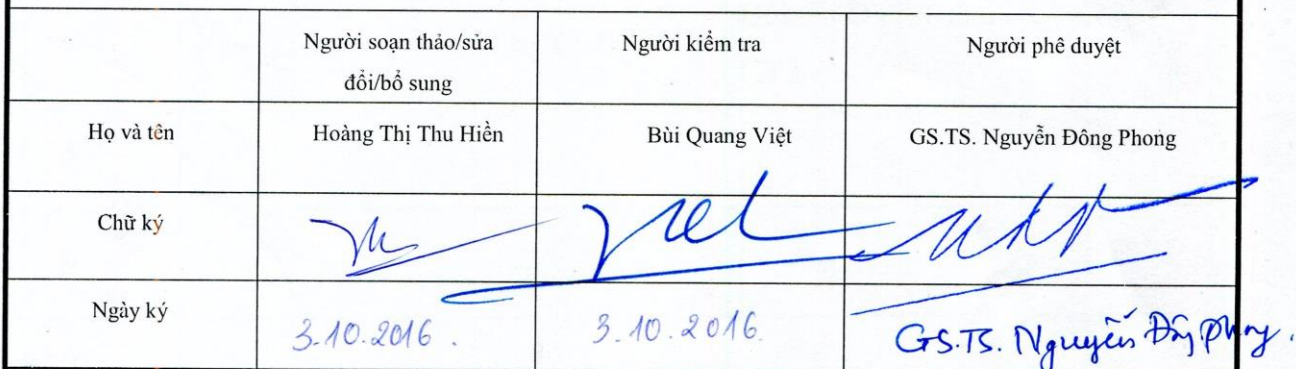 Người soạn thảo/sửa đổi/bổ sung
Người kiểm tra
Người phê duyệt
Họ và tên
Hoàng Thị Thu Hiền
Bùi Quang Việt
GS.TS. Nguyễn Đông Phong
Chữ ký
Ngày ký
3.10.2016.
3.10.2016.
GS.TS. Nguyễn Đông Phong.